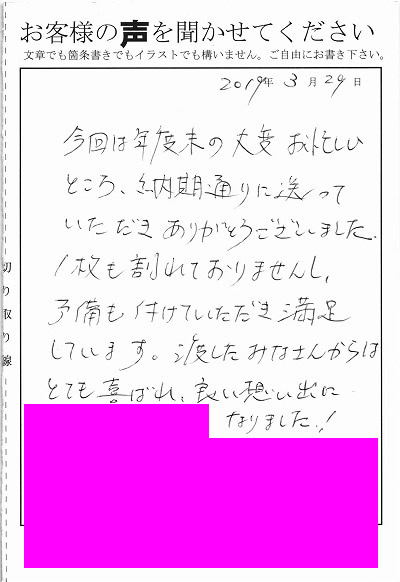 お客様の声を聞かせてください
文章でも箇条書きでもイラストでも構いません。ご自由にお書き下さい。
2019年3月29日
今回は年度末の大変お忙しい
ところ、納期通りに送って
いただきありがとうございました。
1枚も割れておりませんし、
予備も付けていただき満足
しています。渡したみなさんからは
とても喜ばれ、良い想い出に
なりました!
切り取り線